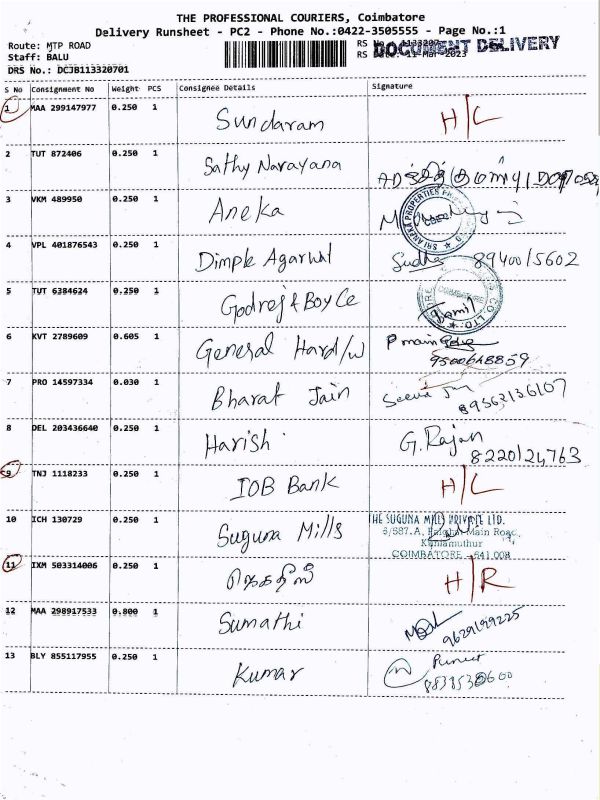 THE PROFESSIONAL COURIERS, Coimbatore
Delivery Runsheet - PC2 - Phone No.:0422-3505555 - Page No.:1
Route: MTP ROAD
Staff: BALU
DRS No.: DCJB113320701
RS No.: 1133207
RS Date.: 11 Mar 2023
DOCUMENT DELIVERY
S No Consignment No Weight PCS Consignee Details Signature
1 MAA 299147977 0.250 1 Sundaram H/L
2 TUT 872406 0.250 1 Sathy Narayana
3 VKM 489950 0.250 1 Aneka
SRI ANEKA PROPERTIES
4 VPL 401876543 0.250 1 Dimple Agarwal Sudha 8940015602
5 TUT 6384624 0.250 1 Godrej & Boyce Tamil
COIMBATORE
6 KVT 2789609 0.605 1 General Hard/w
9500648859
7 PRO 14597334 0.030 1 Bharat Jain
8 DEL 203436640 0.250 1 Harish G. Rajan
8220124763
9 TNJ 1118233 0.250 1 IOB Bank H/L
10 ICH 130729 0.250 1 Suguna Mills
THE SUGUNA MILLS PRIVATE LTD.
Main Road
Kuniamuthur
COIMBATORE - 641 008
11 IXM 503314006 0.250 1 H/R
12 MAA 298917533 0.800 1 Sumathi
9629199225
13 BLY 855117955 0.250 1 Kumar